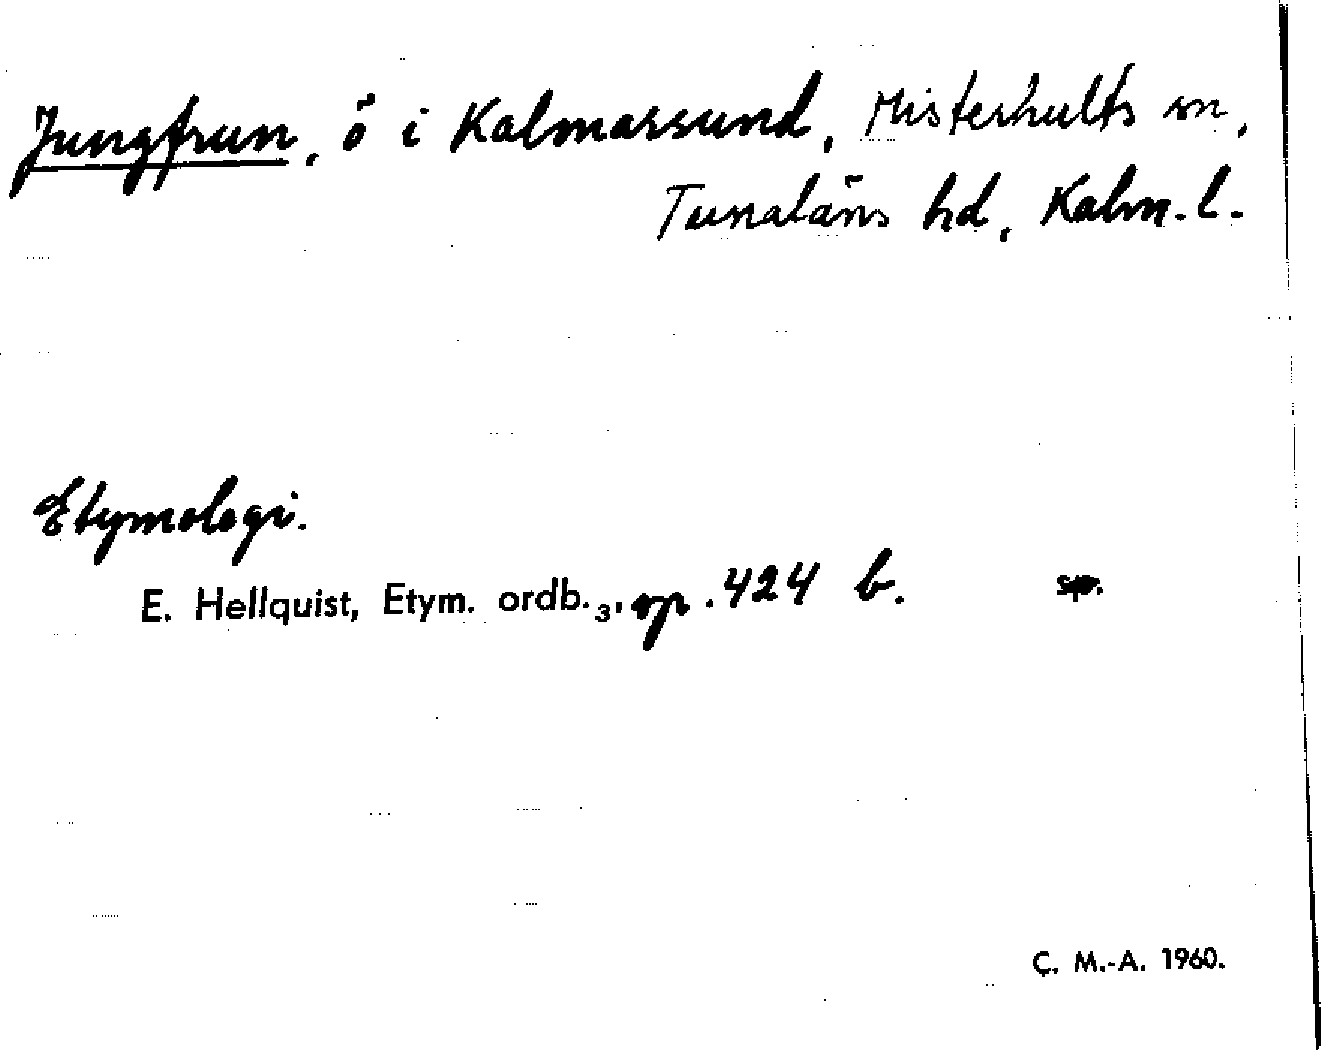 Jungfrun, ö i Kalmarsund, Misterhults sn,
Tunaläns hd, Kalm. l.
Etymologi.
E. Hellquist, Etym. ordb.₃, sp. 424 b. sp.
C. M.-A. 1960.